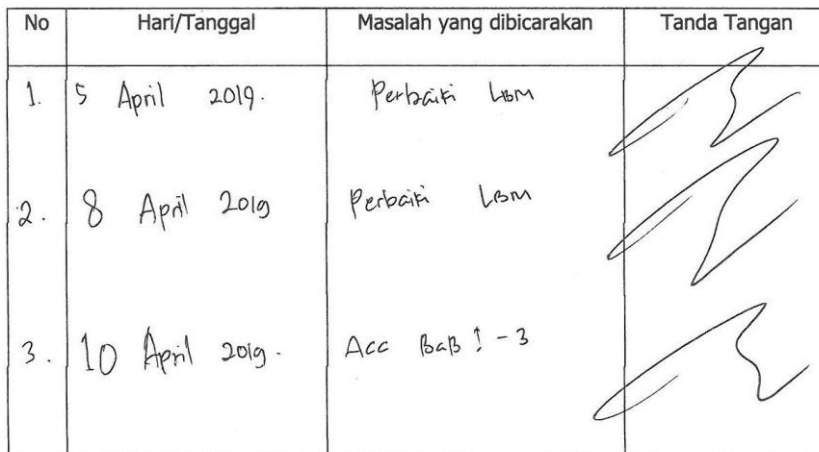 No Hari/Tanggal Masalah yang dibicarakan Tanda Tangan
1. 5 April 2019. Perbaiki LBM
2. 8 April 2019 Perbaiki LBM
3. 10 April 2019. Acc BaB 1 - 3